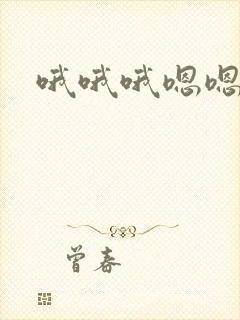 哦哦哦嗯嗯
曾春